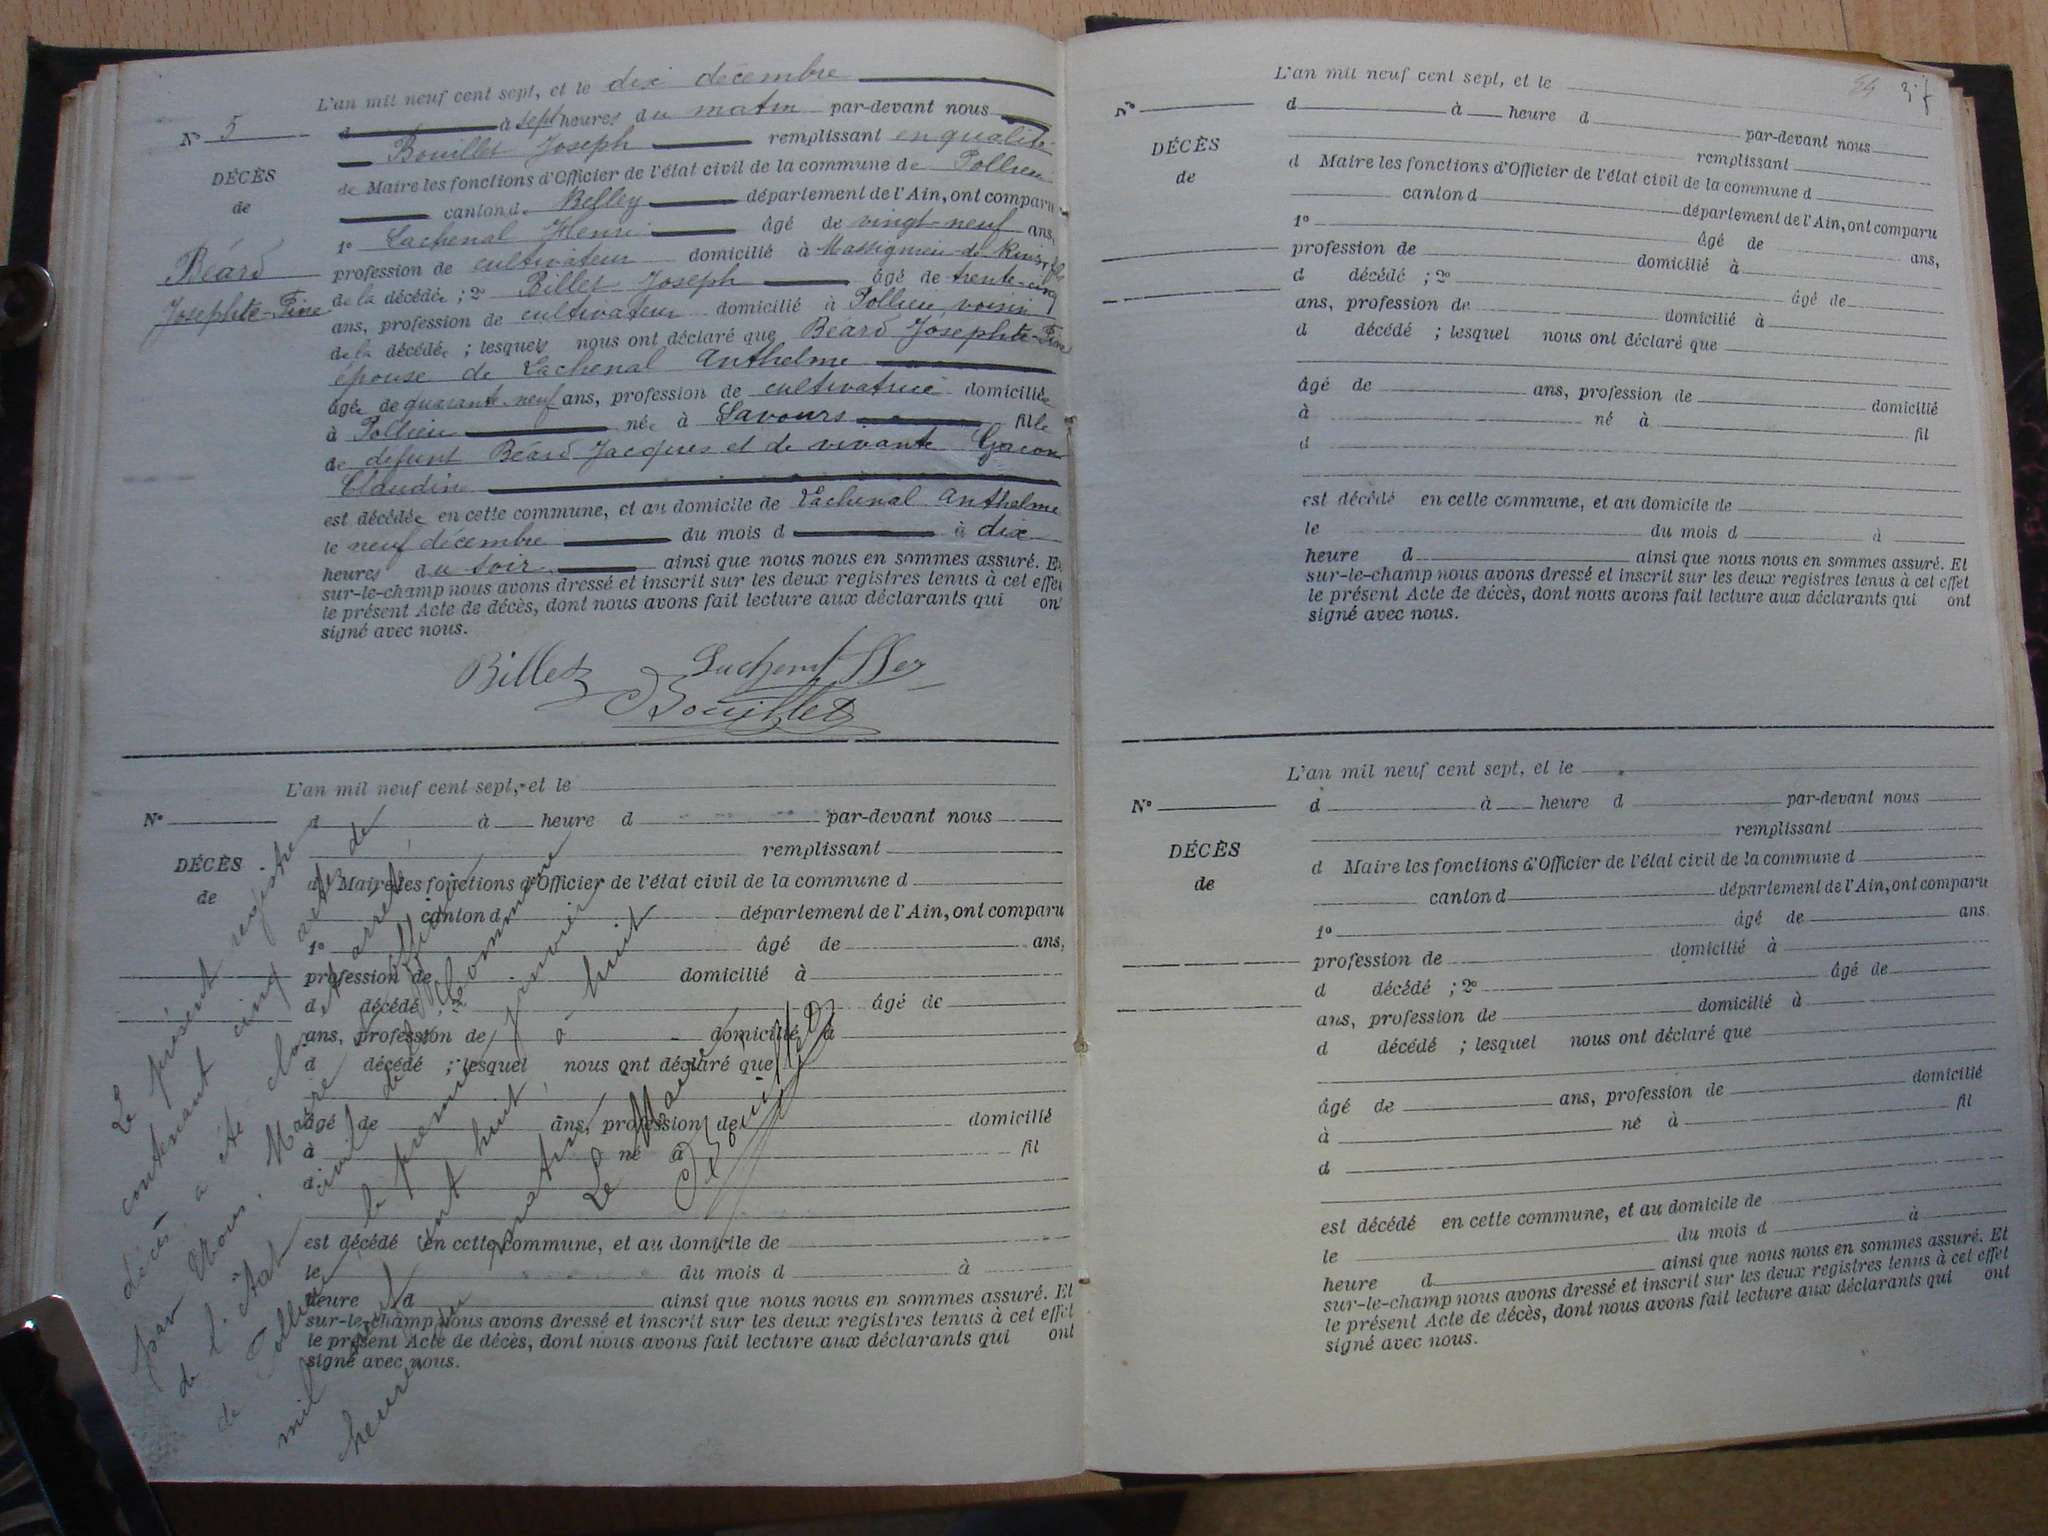 L'an mil neuf cent sept, et le dix décembre
N° 5
d à sept heures du matin par-devant nous
Bouillet Joseph remplissant en qualité
DÉCÈS
de
de Maire les fonctions d'Officier de l'état civil de la commune de Pollieu
canton d. Belley département de l'Ain, ont comparu
1° Lachenal Henri âgé de vingt-neuf ans,
Béard
Josephte-Fine
profession de cultivateur domicilié à Massignieu de Rives, fils
de la décédée ; 2° Billet Joseph âgé de trente-cinq
ans, profession de cultivateur domicilié à Pollieu voisin
de la décédée ; lesquels nous ont déclaré que Béard Josephte-Fine
épouse de Lachenal Anthelme
âgée de quarante-neuf ans, profession de cultivatrice domiciliée
à Pollieu née à Lavours fille
de défunt Béard Jacques et de vivante Gacon
Claudine
est décédée en cette commune, et au domicile de Lachenal Anthelme
le neuf décembre du mois d à dix
heures du soir ainsi que nous nous en sommes assuré. Et
sur-le-champ nous avons dressé et inscrit sur les deux registres tenus à cet effet
le présent Acte de décès, dont nous avons fait lecture aux déclarants qui ont
signé avec nous.
Billet
Bouillet
L'an mil neuf cent sept, et le
N°
d à heure d par-devant nous
remplissant
DÉCÈS
de
d Maire les fonctions d'Officier de l'état civil de la commune d
canton d département de l'Ain, ont comparu
1° âgé de ans,
profession de domicilié à
d décédé ; 2° âgé de
ans, profession de domicilié à
d décédé ; lesquel nous ont déclaré que
âgé de ans, profession de domicilié
à né à fil
d
est décédé en cette commune, et au domicile de
le du mois d à
heure d ainsi que nous nous en sommes assuré. Et
sur-le-champ nous avons dressé et inscrit sur les deux registres tenus à cet effet
le présent Acte de décès, dont nous avons fait lecture aux déclarants qui ont
signé avec nous.
Le présent registre
contenant cinq actes de
décès a été clos et arrêté
par Nous, Maire Officier
de l'état civil de la Commune
de Pollieu le premier janvier
mil neuf cent huit, à huit
heures du matin
Le Maire
Bouillet
37
L'an mil neuf cent sept, et le
N°
d à heure d par-devant nous
remplissant
DÉCÈS
de
d Maire les fonctions d'Officier de l'état civil de la commune d
canton d département de l'Ain, ont comparu
1° âgé de ans,
profession de domicilié à
d décédé ; 2° âgé de
ans, profession de domicilié à
d décédé ; lesquel nous ont déclaré que
âgé de ans, profession de domicilié
à né à fil
d
est décédé en cette commune, et au domicile de
le du mois d à
heure d ainsi que nous nous en sommes assuré. Et
sur-le-champ nous avons dressé et inscrit sur les deux registres tenus à cet effet
le présent Acte de décès, dont nous avons fait lecture aux déclarants qui ont
signé avec nous.
L'an mil neuf cent sept, et le
N°
d à heure d par-devant nous
remplissant
DÉCÈS
de
d Maire les fonctions d'Officier de l'état civil de la commune d
canton d département de l'Ain, ont comparu
1° âgé de ans.
profession de domicilié à
d décédé ; 2° âgé de
ans, profession de domicilié à
d décédé ; lesquel nous ont déclaré que
âgé de ans, profession de domicilié
à né à fil
d
est décédé en cette commune, et au domicile de
le du mois d à
heure d ainsi que nous nous en sommes assuré. Et
sur-le-champ nous avons dressé et inscrit sur les deux registres tenus à cet effet
le présent Acte de décès, dont nous avons fait lecture aux déclarants qui ont
signé avec nous.